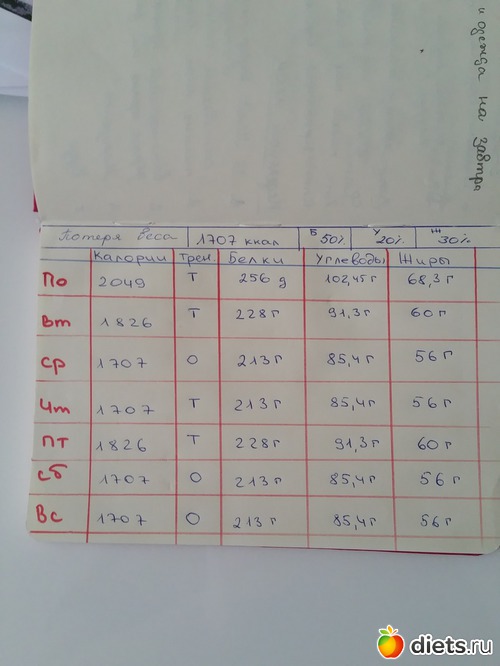 и одежда на завтра
Потеря веса 1707 ккал Б 50% У 20% Ж 30%
Калории Трен. Белки Углеводы Жиры
По 2049 Т 256 g 102,45 г 68,3 г
Вт 1826 Т 228 г 91,3 г 60 г
Ср 1707 О 213 г 85,4 г 56 г
Чт 1707 Т 213 г 85,4 г 56 г
Пт 1826 Т 228 г 91,3 г 60 г
Сб 1707 О 213 г 85,4 г 56 г
Вс 1707 О 213 г 85,4 г 56 г
diets.ru